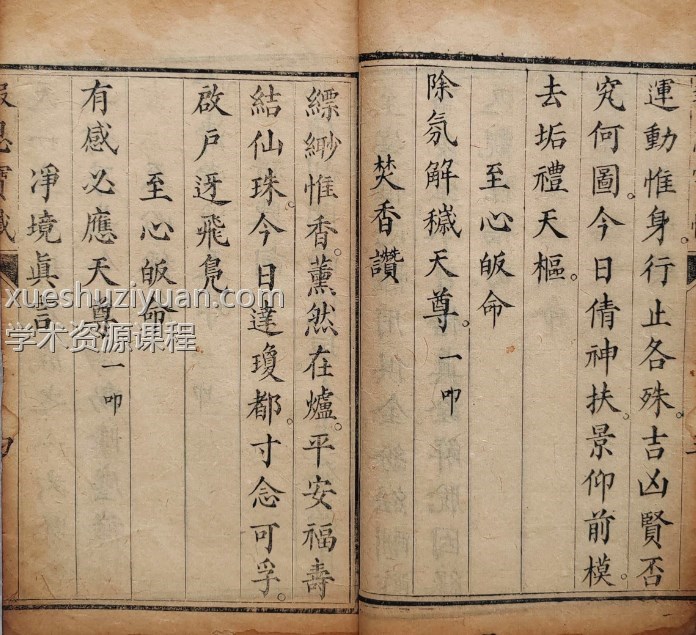 運動惟身。行止各殊。吉凶賢否
究何圖今日倩神扶景仰前模。
去垢禮天樞。
至心皈命
除氛解穢天尊。一叩
焚香讚
縹緲惟香。薰然在爐。平安福壽
結仙珠。今日達瓊都。寸念可孚。
啟戶迓飛鳬。
至心皈命
有感必應天尊。一叩
淨境眞言
xueshuziyuan.com
学术资源课程